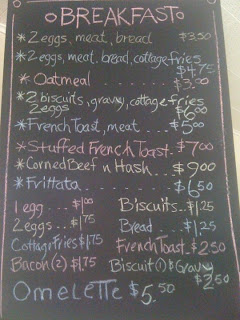 BREAKFAST
*2 eggs, meat, bread $3.50
*2 eggs, meat, bread, cottage fries
$4.75
*Oatmeal .......... $3.00
*2 biscuits, gravy, cottage fries
2 eggs $6.00
*French Toast, meat .... $5.00
*Stuffed French Toast. $7.00
*Corned Beef n Hash. $9.00
*Frittata ........ $6.50
1 egg .. $1.00 Biscuits.. $1.25
2 eggs.. $1.75 Bread .. $1.25
Cottage Fries $1.75 French Toast.. $2.50
Bacon (2) $1.75 Biscuit (1) & Gravy
$2.50
Omelette $5.50